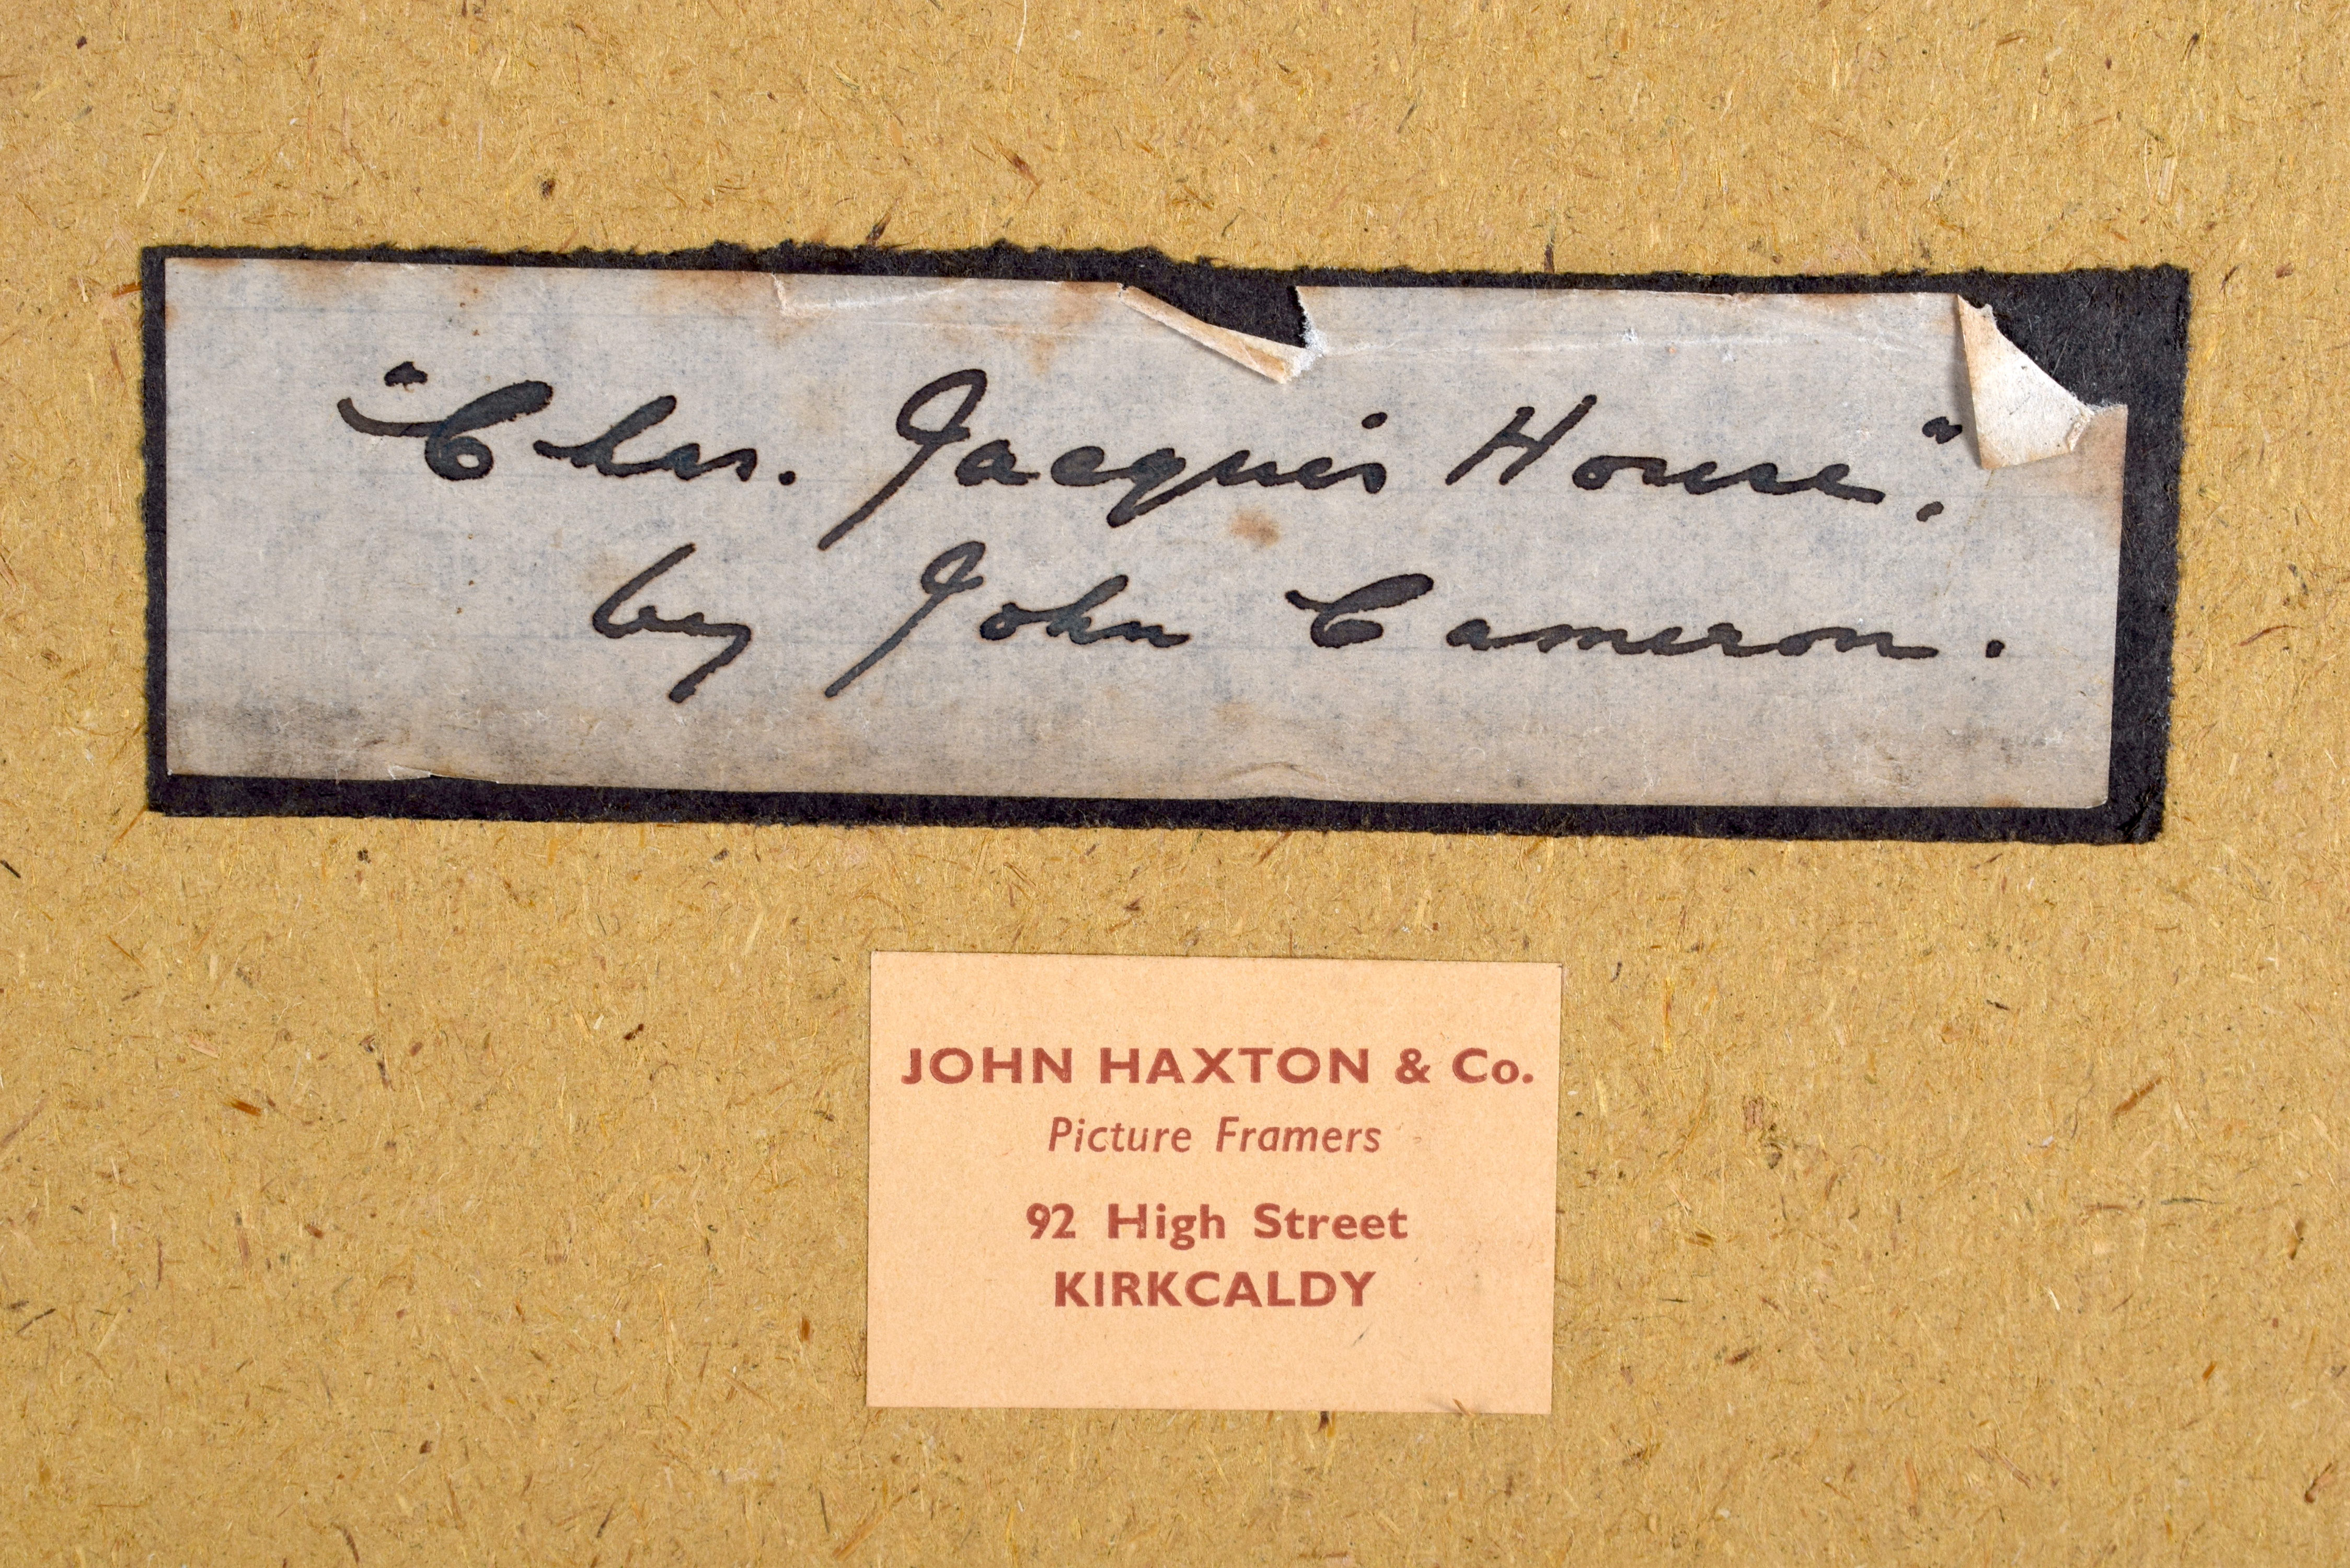 "Chas. Jacquis House".
by John Cameron.
JOHN HAXTON & Co.
Picture Framers
92 High Street
KIRKCALDY